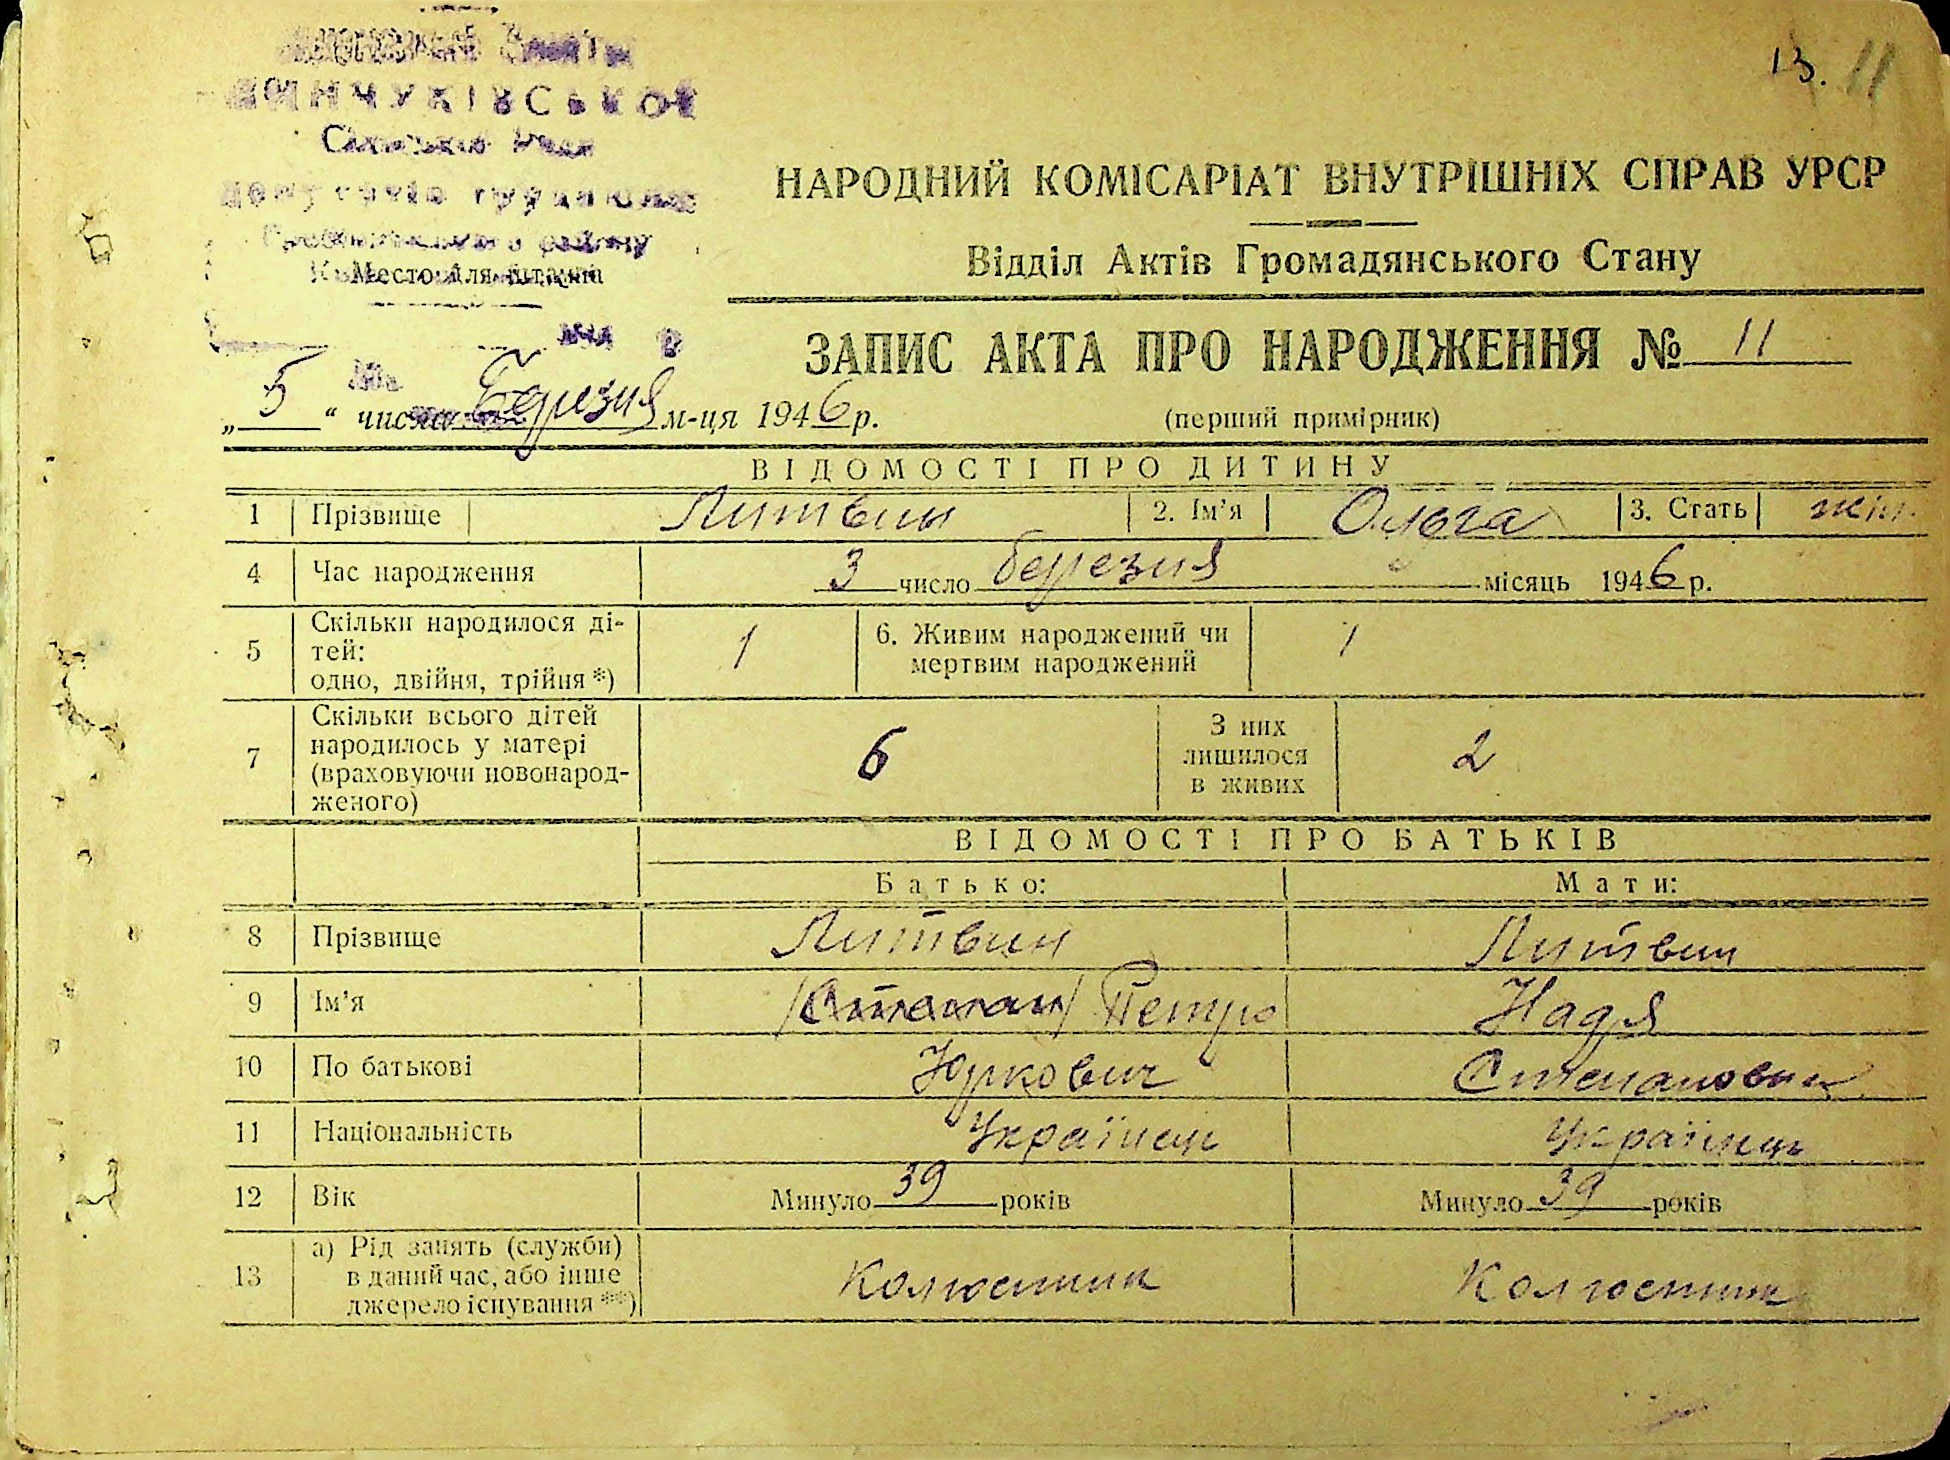 13. 11
Сільської Ради
району
Место для штампа
НАРОДНИЙ КОМІСАРІАТ ВНУТРІШНІХ СПРАВ УРСР
Відділ Актів Громадянського Стану
ЗАПИС АКТА ПРО НАРОДЖЕННЯ № 11
„ 5 “ числа Березня м-ця 1946 р.
(перший примірник)
ВІДОМОСТІ ПРО ДИТИНУ
1 Прізвище Литвин 2. Ім'я Ольга 3. Стать жін.
4 Час народження 3 число березня місяць 1946 р.
5 Скільки народилося ді-
тей:
одно, двійня, трійня *) 1
6. Живим народжений чи
мертвим народжений 1
7 Скільки всього дітей
народилось у матері
(враховуючи новонарод-
женого) 6
З них
лишилося
в живих 2
ВІДОМОСТІ ПРО БАТЬКІВ
Батько: Мати:
8 Прізвище Литвин Литвин
9 Ім'я Петро Надя
10 По батькові Юркович Степановна
11 Національність Українець Українець
12 Вік Минуло 39 років Минуло 39 років
13 а) Рід занять (служби)
в даний час, або інше
джерело існування **)
Колгоспник Колгоспник